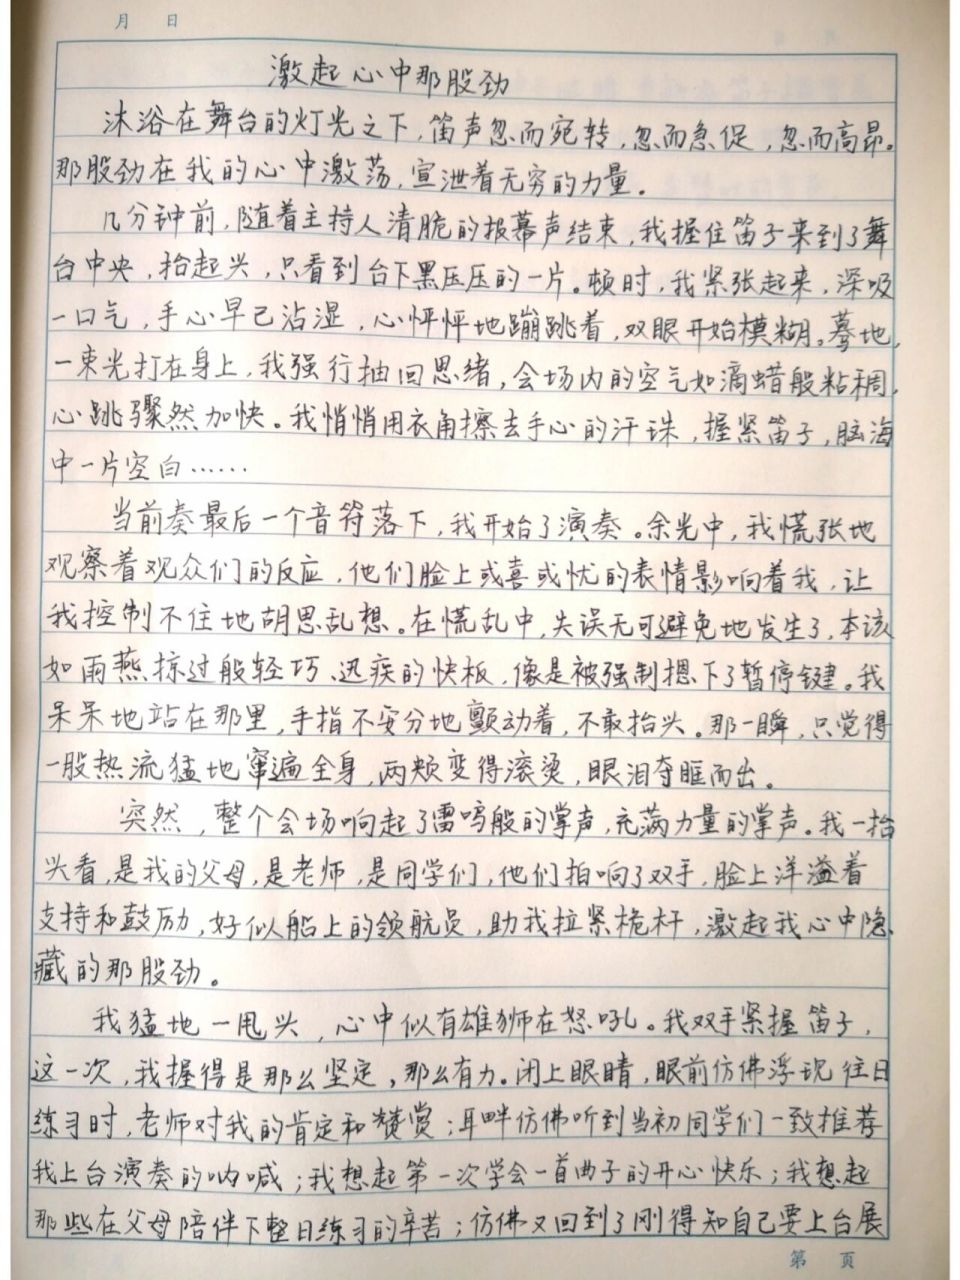 月 日
激起心中那股劲
沐浴在舞台的灯光之下，笛声忽而宛转，忽而急促，忽而高昂。
那股劲在我的心中激荡，宣泄着无穷的力量。
几分钟前，随着主持人清脆的报幕声结束，我握住笛子来到了舞
台中央，抬起头，只看到台下黑压压的一片。顿时，我紧张起来，深吸
一口气，手心早已沾湿，心怦怦地蹦跳着，双眼开始模糊。蓦地，
一束光打在身上，我强行抽回思绪，会场内的空气如滴蜡般粘稠，
心跳骤然加快。我悄悄用衣角擦去手心的汗珠，握紧笛子，脑海
中一片空白……
当前奏最后一个音符落下，我开始了演奏。余光中，我慌张地
观察着观众们的反应，他们脸上或喜或忧的表情影响着我，让
我控制不住地胡思乱想。在慌乱中，失误无可避免地发生了，本该
如雨燕掠过般轻巧、迅疾的快板，像是被强制摁下了暂停键。我
呆呆地站在那里，手指不安分地颤动着，不敢抬头。那一瞬，只觉得
一股热流猛地窜遍全身，两颊变得滚烫，眼泪夺眶而出。
突然，整个会场响起了雷鸣般的掌声，充满力量的掌声。我一抬
头看，是我的父母，是老师，是同学们，他们拍响了双手，脸上洋溢着
支持和鼓励，好似船上的领航员，助我拉紧桅杆，激起我心中隐
藏的那股劲。
我猛地一甩头，心中似有雄狮在怒吼。我双手紧握笛子，
这一次，我握得是那么坚定，那么有力。闭上眼睛，眼前仿佛浮现往日
练习时，老师对我的肯定和赞赏；耳畔仿佛听到当初同学们一致推荐
我上台演奏的呐喊；我想起第一次学会一首曲子的开心快乐；我想起
那些在父母陪伴下整日练习的辛苦；仿佛又回到了刚得知自己要上台展
第 页